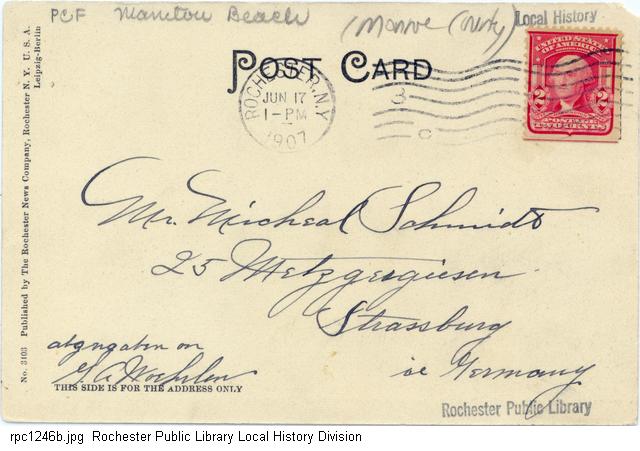 PCF Manitou Beach
(Monroe
Local History
POST CARD
ROCHESTER, N.Y.
JUN 17
1-PM
1907
3
C
UNITED STATES
OF AMERICA
2 2
POSTAGE
TWO CENTS
Mr. Micheal Schmidt
25 Metzgergiesen
Strassburg
Germany
THIS SIDE IS FOR THE ADDRESS ONLY
No. 3103 Published by The Rochester News Company, Rochester N. Y. U. S. A.
Leipzig-Berlin
Rochester Public Library
rpc1246b.jpg Rochester Public Library Local History Division